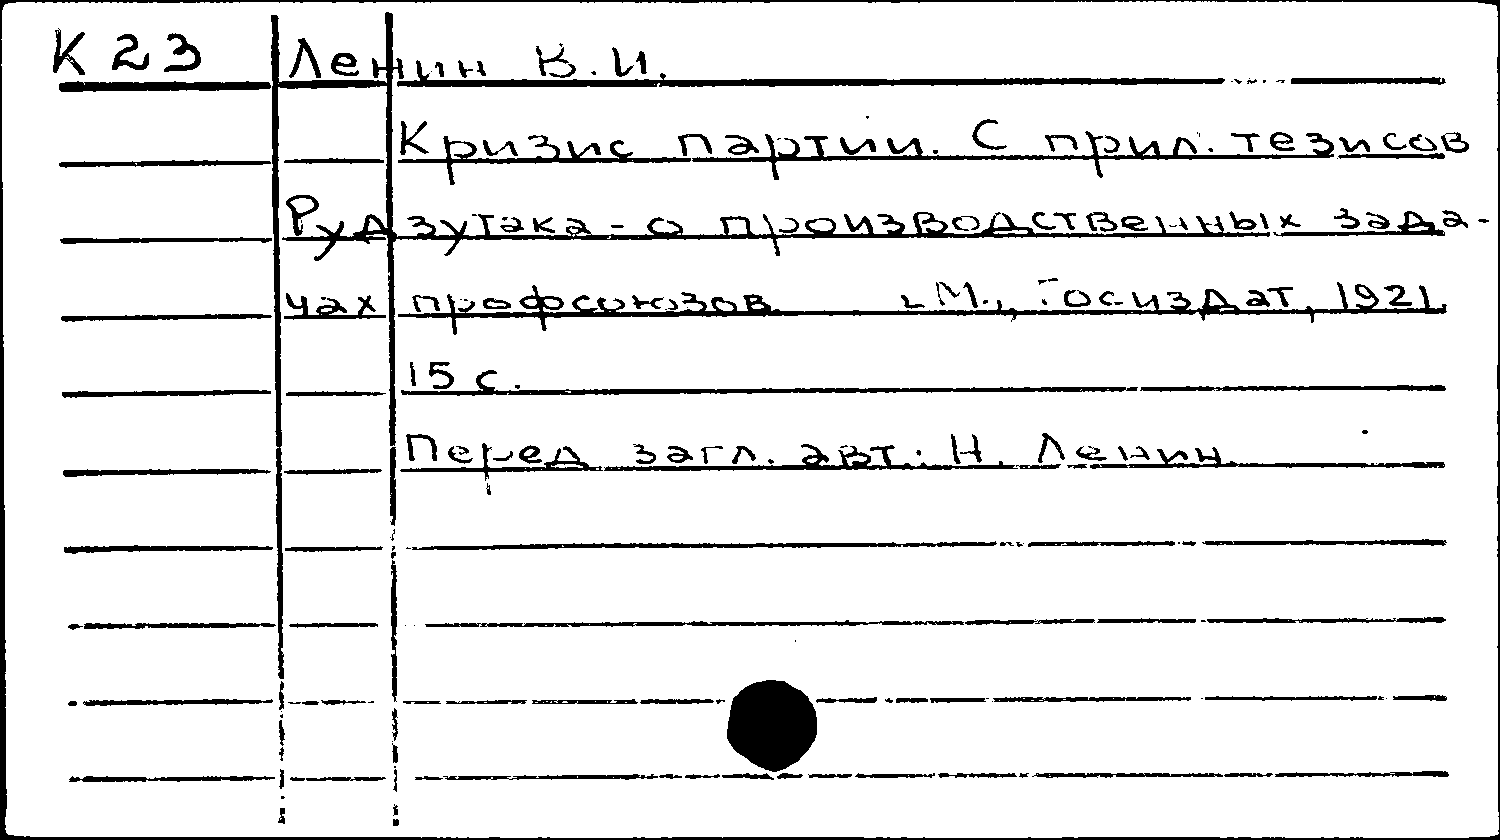 К 23 Ленин В.И.
Кризис партии. С прил. тезисов
Рудзутака - о производственных зада-
чах профсоюзов. М., Госиздат, 1921.
15 с.
Перед загл. авт.: Н. Ленин.